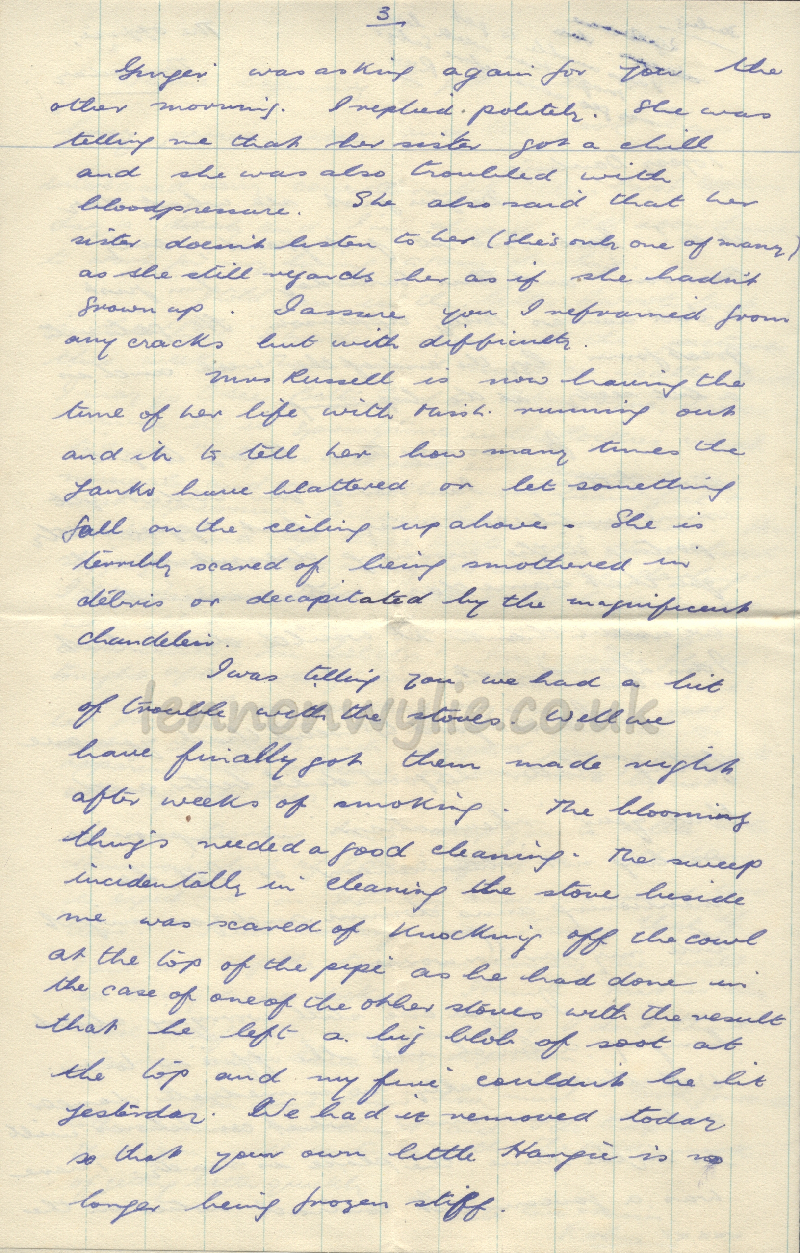 3
Ginger was asking again for you the
other morning. I replied politely. She was
telling me that her sister got a chill
and she was also troubled with
bloodpressure. She also said that her
sister doesn't listen to her (she's only one of many)
as she still regards her as if she hadn't
grown up. I assure you I refrained from
any cracks but with difficulty.
Mrs Russell is now having the
time of her life with running out
and in to tell her how many times the
Yanks have blattered or let something
fall on the ceiling up above. She is
terribly scared of being smothered in
débris or decapitated by the magnificent
chandelier.
I was telling you we had a bit
of trouble with the stoves. Well we
have finally got them made right
after weeks of smoking. The blooming
things needed a good cleaning. The sweep
incidentally in cleaning the stove beside
me was scared of knocking off the cowl
at the top of the pipe as he had done in
the case of one of the other stoves with the result
that he left a big blob of soot at
the top and my fire couldn't be lit
yesterday. We had it removed today
so that your own little Hangie is no
longer being frozen stiff.
lennonwylie.co.uk